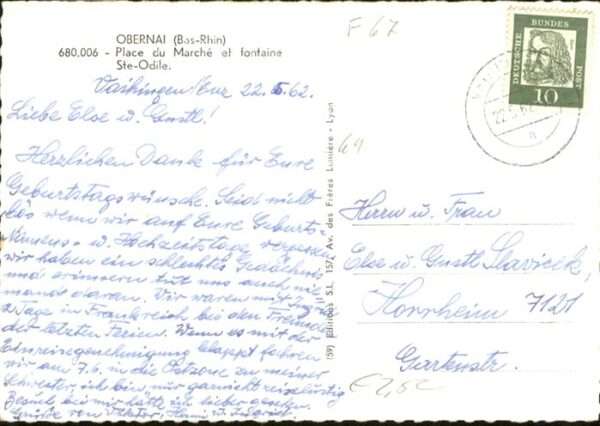 OBERNAI (Bas-Rhin)
680.006 - Place du Marché et fontaine
Ste-Odile.
Vaihingen/Enz 22.5.62.
Liebe Else u. Gustl!
Herzlichen Danke für Eure
Geburtstagswünsche. Seid nicht
bös wenn wir auf Eure Geburts-
Namens- u. Hochzeitstage vergessen
wir haben ein schlechtes Gedächnis
und erinnern tut uns auch nie-
mand daran. Wir waren mit
2 Tage in Frankreich bei den Freunden
der letzten Ferien. Wenn es mit der
Einreisegenehmigung klappt fahren
wir am 7.6. in die Ostzone zu meiner
Schwester, ich bin gar nicht reiselustig
Besuch bei mir hätte ich lieber gesehen.
Grüße von Viktor, Hemi u. Ingrid.
(59) Editions S.L. 157, Av. des Frères Lumière - Lyon
F 67
69
DEUTSCHE BUNDESPOST
10
22.5.62
a
Herrn u. Frau
Else u. Gustl Slavicek,
Horrheim 7121
Gartenstr.
€ 2,50